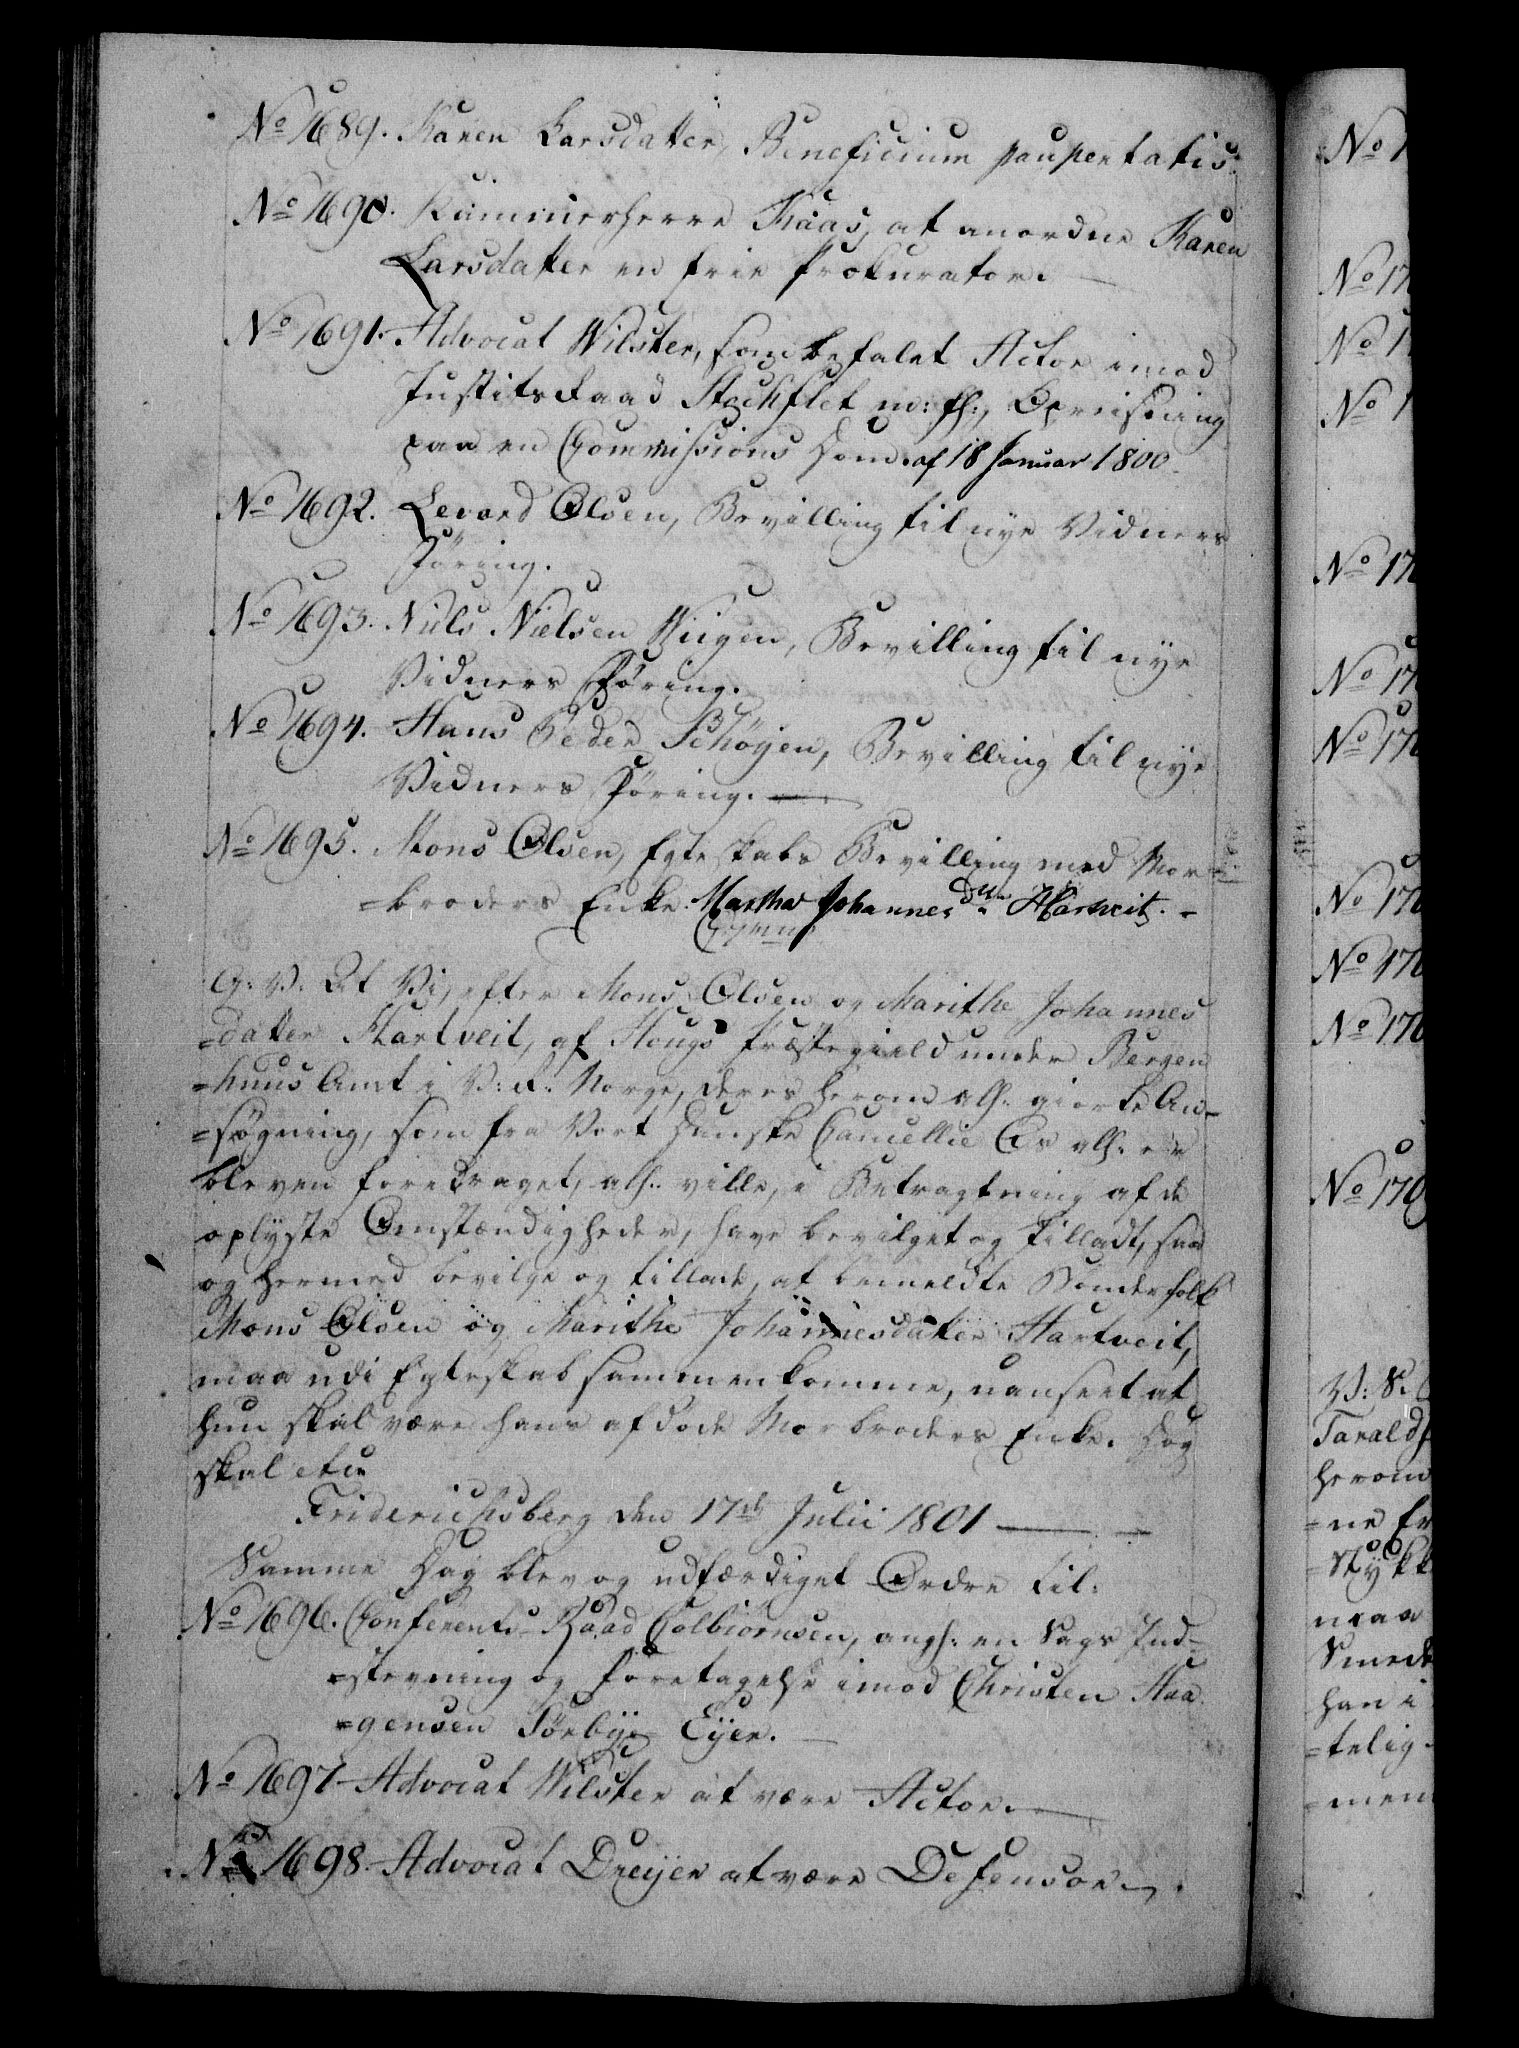 No 1689. Karen Larsdatter, Beneficium paupertatis.
No 1690. Kammerherre Kaas, at anordne Karen
Larsdatter en frie Prokurator.
No 1691. Advocat Wilster, som befalet Actor imod
Justitsraad Stockflet m: fl:, Opreisning
paa en Commissions Dom. af 18 Januar 1800.
No 1692. Levord Olsen, Bevilling til nye Vidners
Föring.
No 1693. Niels Nielsen Wigen, Bevilling til nye
Vidners Föring.
No 1694. Hans Peder Schöyen, Bevilling til nye
Vidners Föring.
No 1695. Mons Olsen, Egteskabs Bevilling med Mor-
=broders Enke Martha Johannesdtr Hartveit.
G: V. At Vi, efter Mons Olsen og Marithe Johannes
=datter Hartveit, af Hougs Præstegield under Bergen
=huus Amt i V: R: Norge, deres herom all: giorte An-
=søgning, som fra Vort Danske Cancellie Os all: er
bleven foredraget, all: ville, i Betragtning af de
oplyste Omstændigheder, have bevilget og tilladt, saa
og hermed bevilge og tillade, at bemeldte Bønderfolk
Mons Olsen og Marithe Johannesdatter Hartveit,
maa udi Egteskab sammenkomme, uanseet at
hun skal være hans afdöde Morbroders Enke. Dog
skal etc.
Friderichsberg den 17de Julii 1801
Samme Dag blev og udfærdiget Ordre til:
No 1696. Conferents-Raad Colbiörnsen, angl: en Sags Ind-
=stevning og Foretagelse imod Christen Haa
=gensen Sörbye Eyer.
No 1697 Advocat Wilster at være Actor.
No 1698. Advocat Dreyer at være Defensor.
No 1
No 17
No 1
No 1
No 170
No 170
No 170
No 170
No 170
No 170
No 170
V: S.
Tarald
herom
=ne Er
=Stykk
maa
Smede
han i
=telig
=men